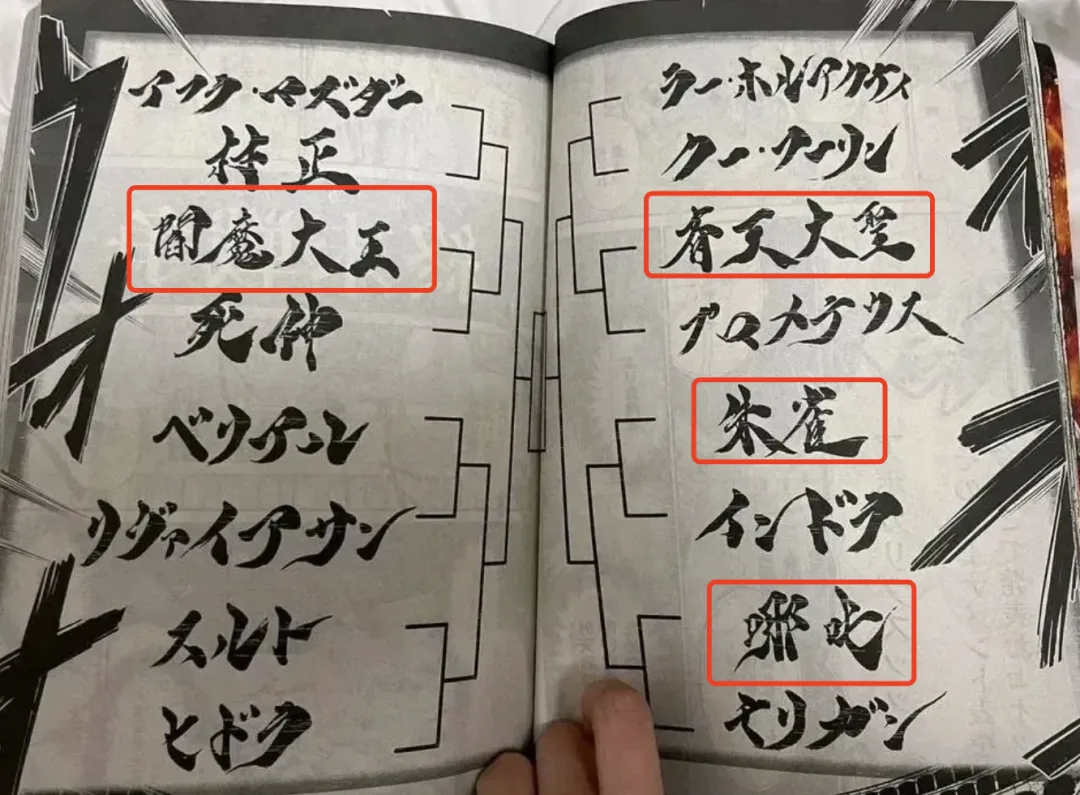 アフラ・マズダー
村正
閻魔大王
死神
ベリアル
リヴァイアサン
スルト
ヒドラ
ラー・ホルアクティ
クー・フーリン
斉天大聖
プロメテウス
朱雀
インドラ
哪吒
モリガン